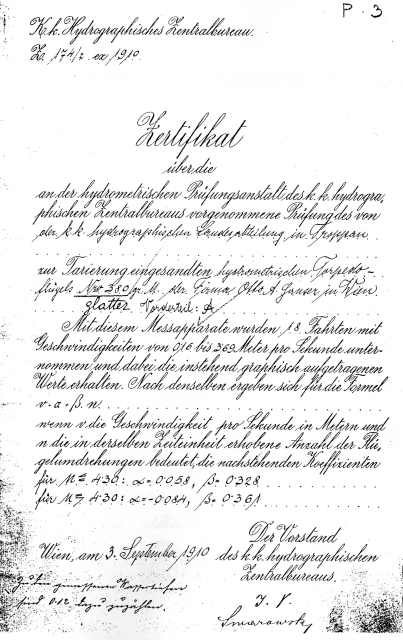 P. 3
K. k. Hydrographisches Zentralbureau.
Z. 174/2 ex 1910.
Zertifikat
über die
an der hydrometrischen Prüfungsanstalt des k. k. hydrogra,
phischen Zentralbureaus vorgenommene Prüfung des von
der k. k. hydrographischen Landesabteilung in Troppau
zur Tarierung eingesandten hydrometrischen Torpedo-
flügels Nro 380 M. der Firma Otto A. Ganser in Wien
glatter Vorderteil:
Mit diesem Messapparate wurden 18 Fahrten mit
Geschwindigkeiten von 0,16 bis 3,69 Meter pro Sekunde unter-
nommen und dabei die instehend graphisch aufgetragenen
Werte erhalten. Nach denselben ergeben sich für die Formel
v = α + β. n
wenn v die Geschwindigkeit pro Sekunde in Metern und
n die in derselben Zeiteinheit erhobene Anzahl der Flü,
gelumdrehungen bedeutet, die nachstehenden Koeffizienten
für 4.30: α = 0.058, β = 0.328
für 4.30: α = -0.084, β = 0.361
Der Vorstand
Wien, am 3. September 1910 des k. k. hydrographischen
Zentralbureaus.
I. V.
sind 0.12 dazu zu zählen.